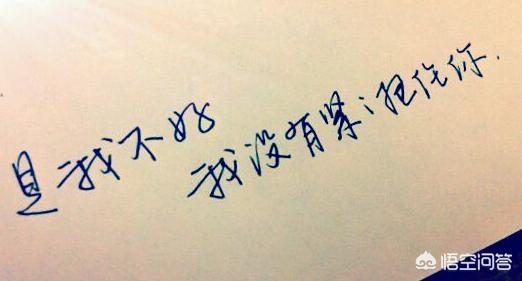 是我不好
我没有紧;把住你.
悟空问答